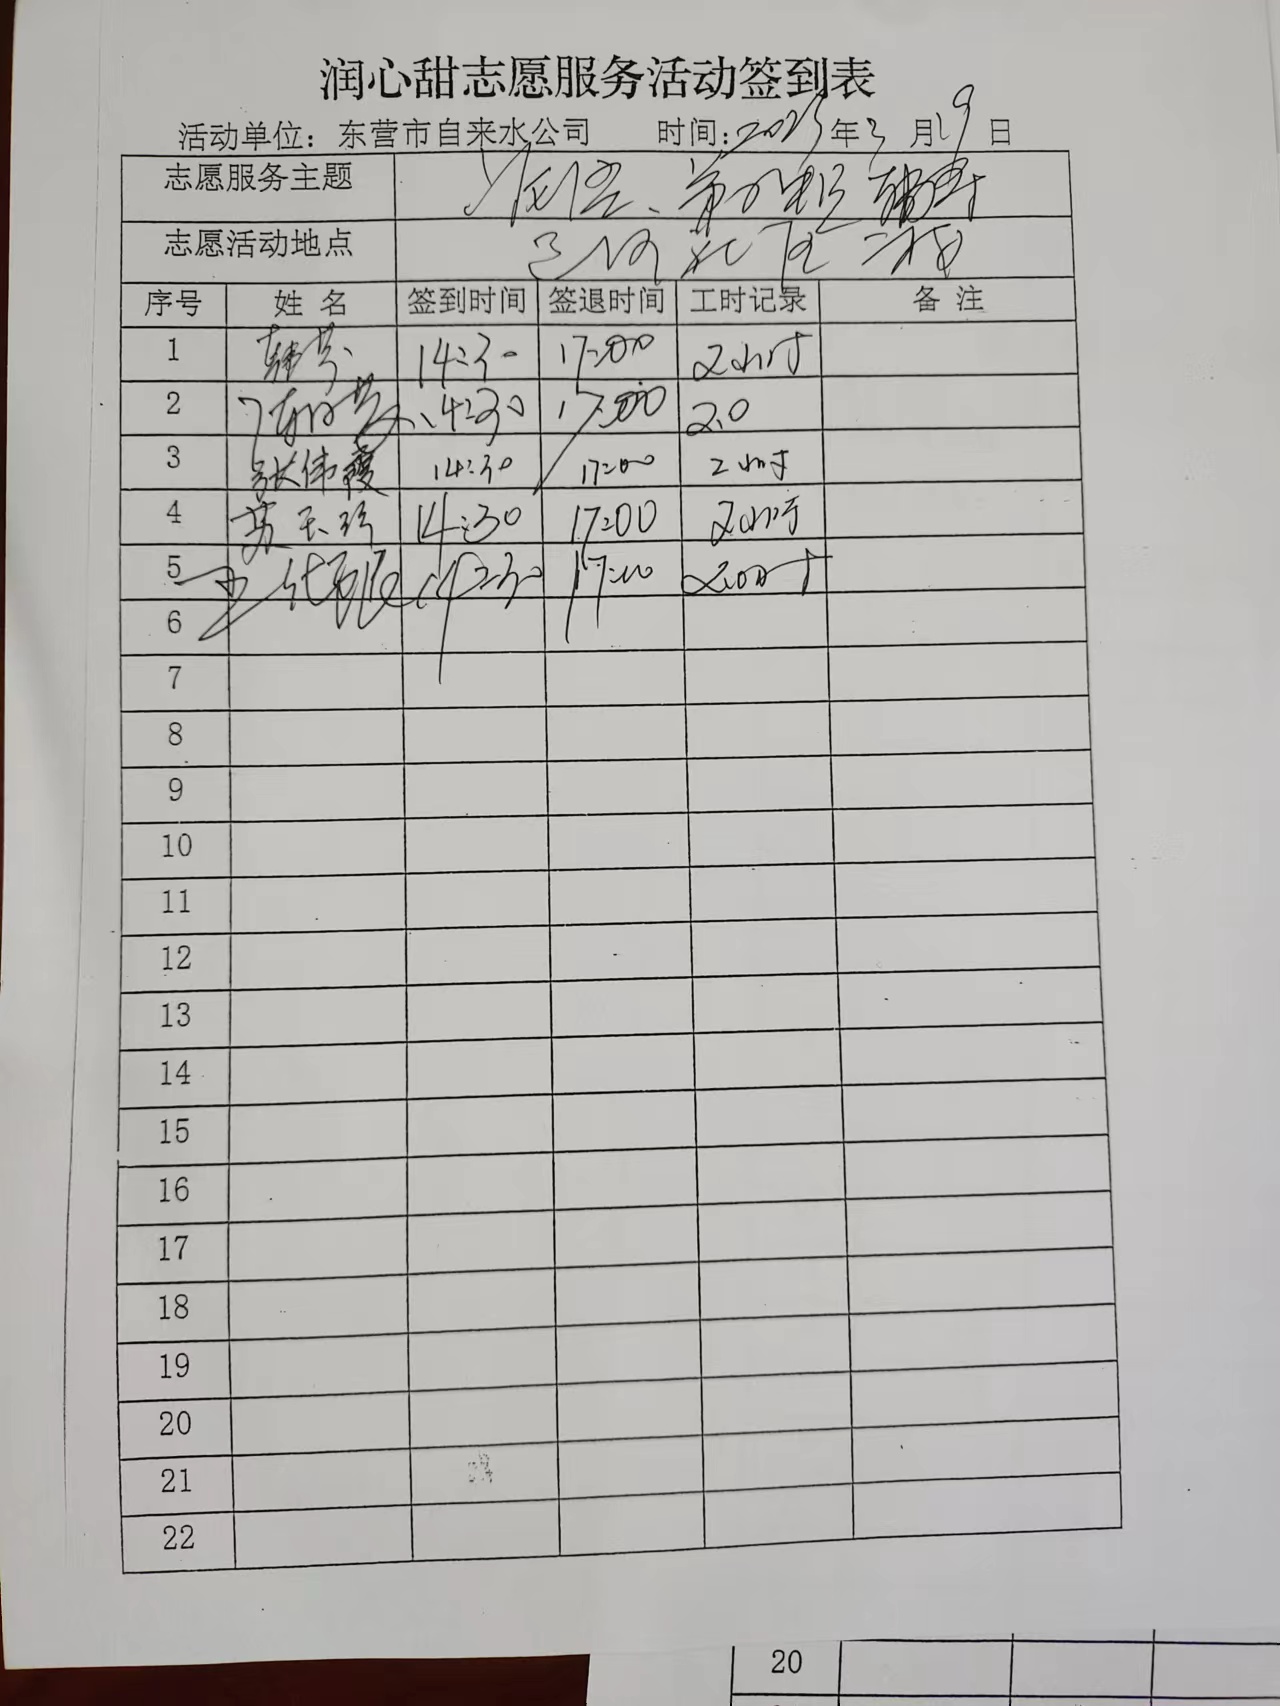 润心甜志愿服务活动签到表
活动单位：东营市自来水公司 时间：2023年3月19日
志愿服务主题
志愿活动地点 社区
序号 姓名 签到时间 签退时间 工时记录 备注
1 韩芳 14:30 17:00 2小时
2 14:30 17:00 2.0
3 张伟霞 14:30 17:00 2小时
4 苏玉珍 14:30 17:00 2小时
5 14:30 17:00 2.0小时
6
7
8
9
10
11
12
13
14
15
16
17
18
19
20
21
22
20